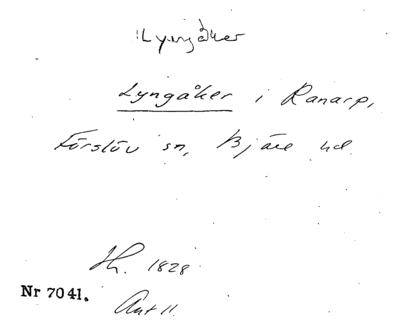 Lyngåker
Lyngåker i Ranarp,
Förslöv sn, Bjäre hd.
Lh. 1828
Nr 7041.
Akt 11.